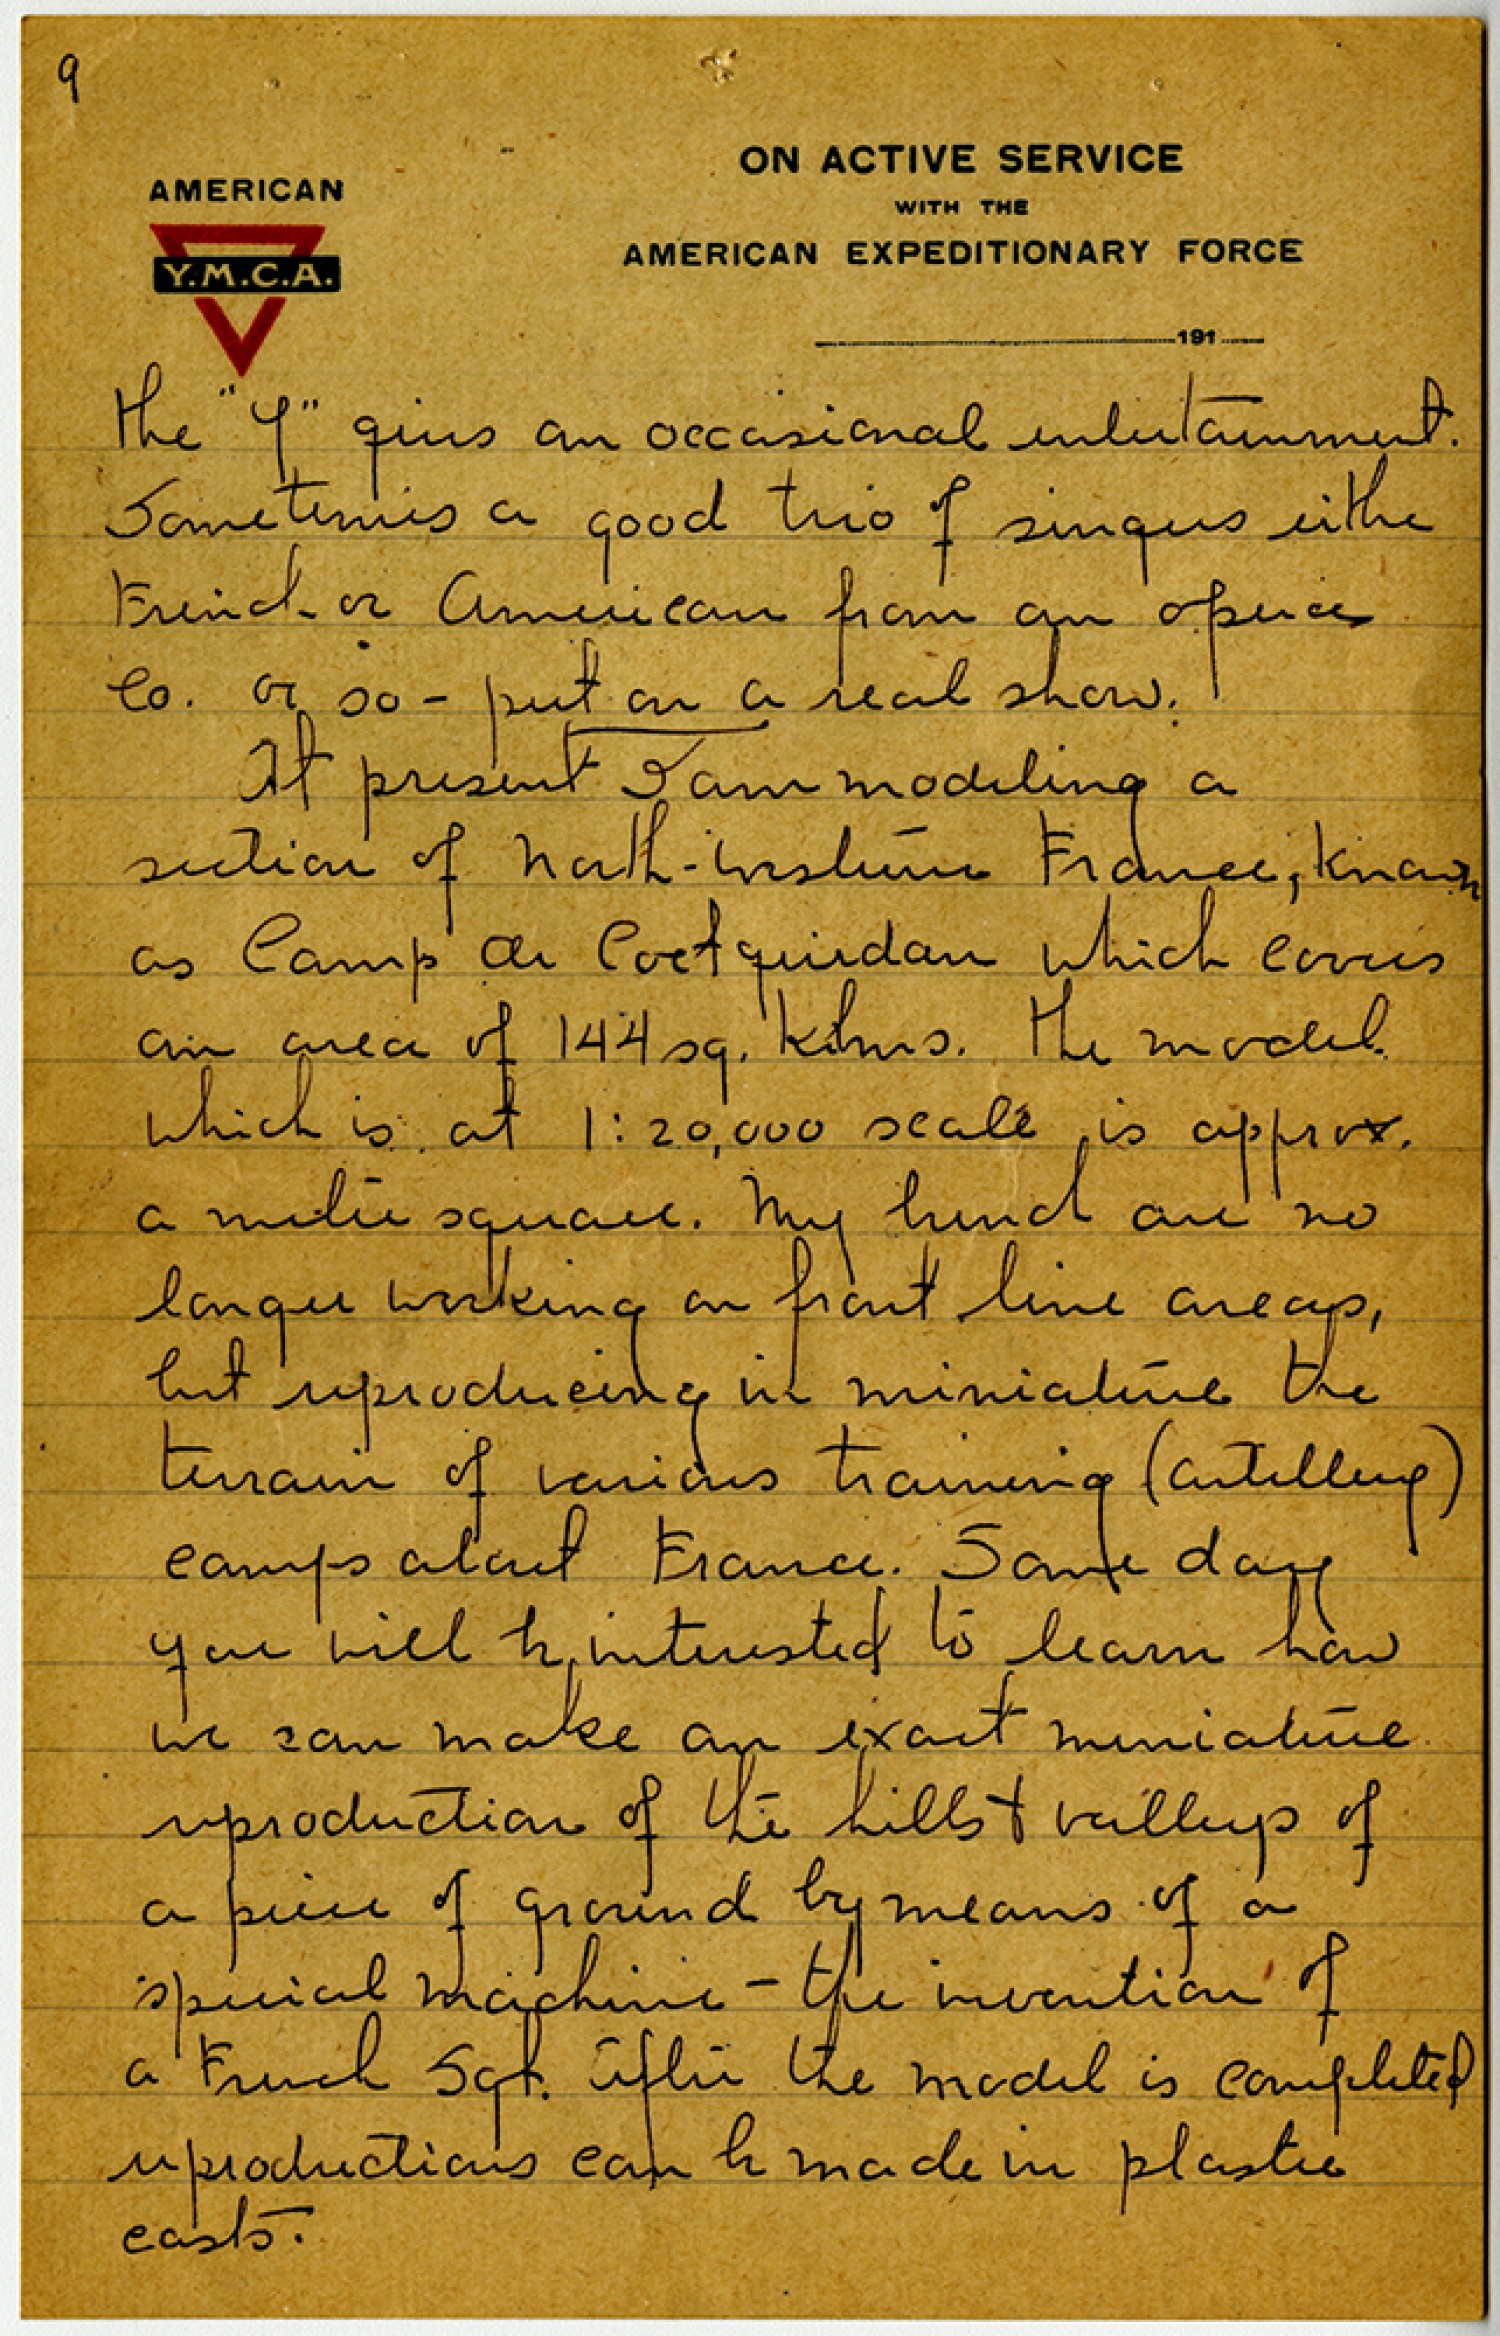 9
ON ACTIVE SERVICE
WITH THE
AMERICAN EXPEDITIONARY FORCE
AMERICAN
Y.M.C.A.
191
the "Y" gives an occasional entertainment.
Sometimes a good trio of singers either
French or American from an opera
Co. or so - put on a real show.
At present I am modeling a
section of North-western France, known
as Camp de Coetquidan which covers
an area of 144 sq. kilms. The model
which is at 1:20,000 scale is approx.
a meter square. My bunch are no
longer working on front line areas,
but reproducing in miniature the
terrain of various training (artillery)
camps about France. Some day
you will be interested to learn how
we can make an exact miniature
reproduction of the hills & valleys of
a piece of ground by means of a
special machine - the invention of
a French Sgt. After the model is completed
reproductions can be made in plaster
casts.